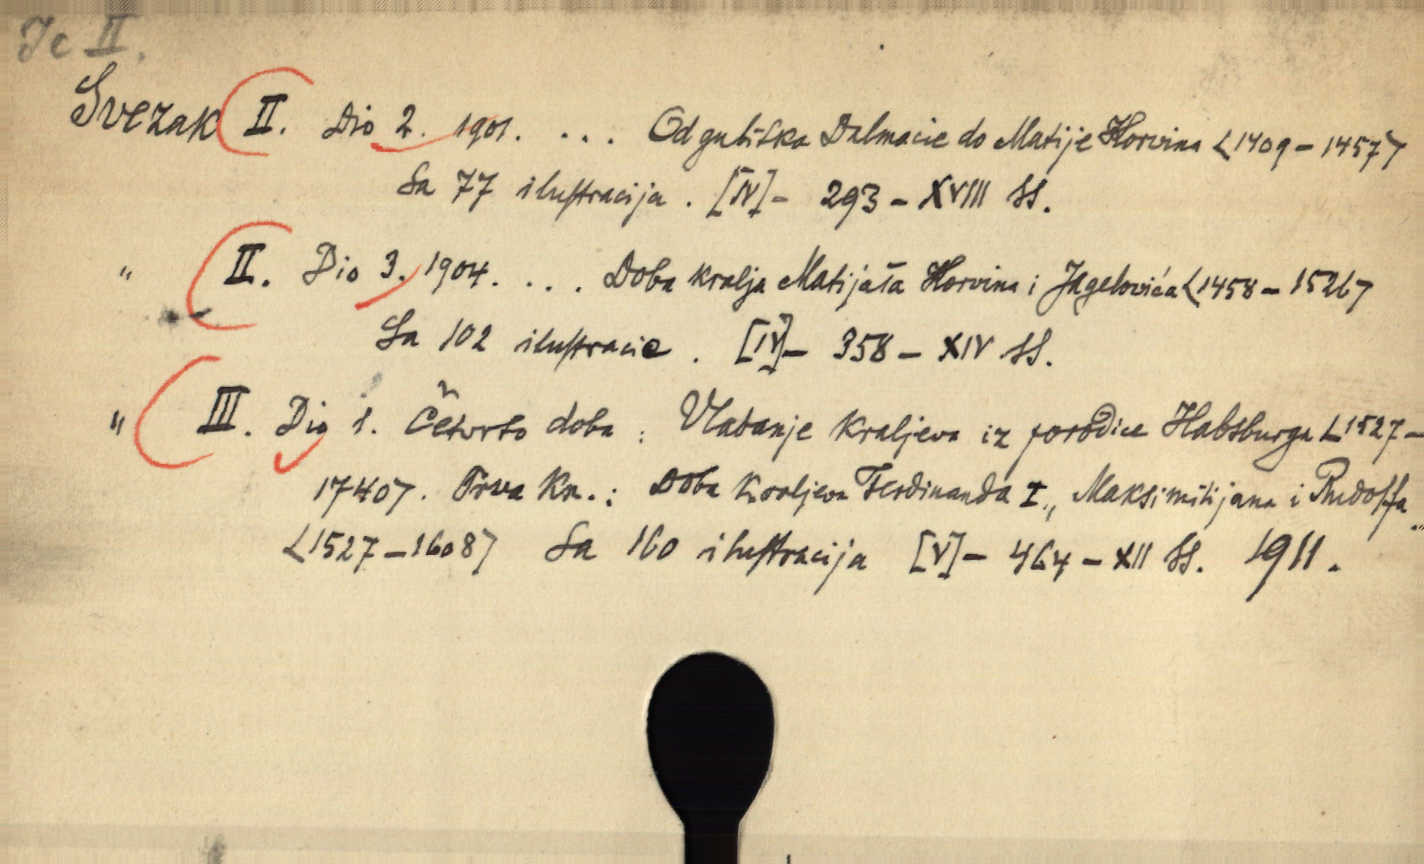 Jc II.
Svezak II. Dio 2. 1901. . . . Od gubitka Dalmacie do Matije Korvina <1409 - 1457>
Sa 77 ilustracija. [IV] - 293 - XVIII SS.
" II. Dio 3. 1904. . . . Doba kralja Matijaša Korvina i Jagelovića <1458 - 1526>
Sa 102 ilustracie. [IV] - 358 - XIV SS.
" III. Dio 1. Četvrto doba : Vladanje kraljeva iz porodice Habsburga <1527 -
1740>. Prva Kn. : Doba kraljeva Ferdinanda I., Maksimilijana i Rudolfa
<1527 - 1608> Sa 160 ilustracija [V] - 464 - XII SS. 1911.